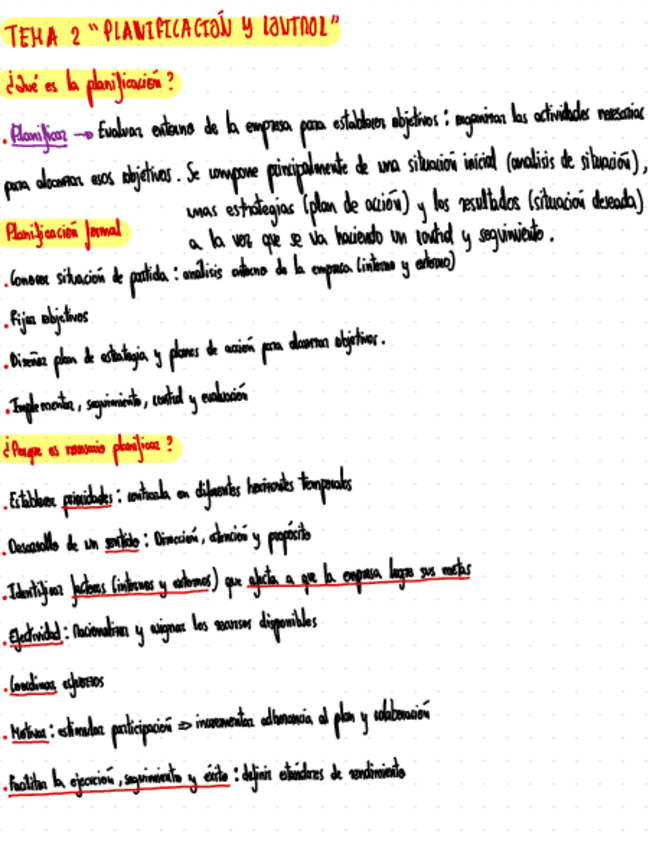 TEMA 2 "PLANIFICACIÓN y CONTROL"
¿Qué es la planificación?
. Planificar → Evaluar entorno de la empresa para establecer objetivos: organizar las actividades necesarias
para alcanzar esos objetivos. Se compone principalmente de una situación inicial (analisis de situación),
unas estrategias (plan de acción) y los resultados (situación deseada)
a la vez que se va haciendo un control y seguimiento.
Planificación formal
. Conocer situación de partida: análisis entorno de la empresa (interno y externo)
. Fijar objetivos
. Diseñar plan de estrategia y planes de acción para alcanzar objetivos.
. Implementar, seguimiento, control y evaluación
¿Porque es necesario planificar?
. Establecer prioridades: en diferentes horizontes temporales
. Desarrollo de un sentido: Dirección, atención y propósito
. Identificar factores (internos y externos) que afecta a que la empresa logre sus metas
. Efectividad: Racionalizar y asignar los recursos disponibles
. Coordinar esfuerzos
. Motivar: estimular participación ⇒ incrementar adherencia al plan y colaboración
. Facilitar la ejecución, seguimiento y éxito: definir estándares de rendimiento